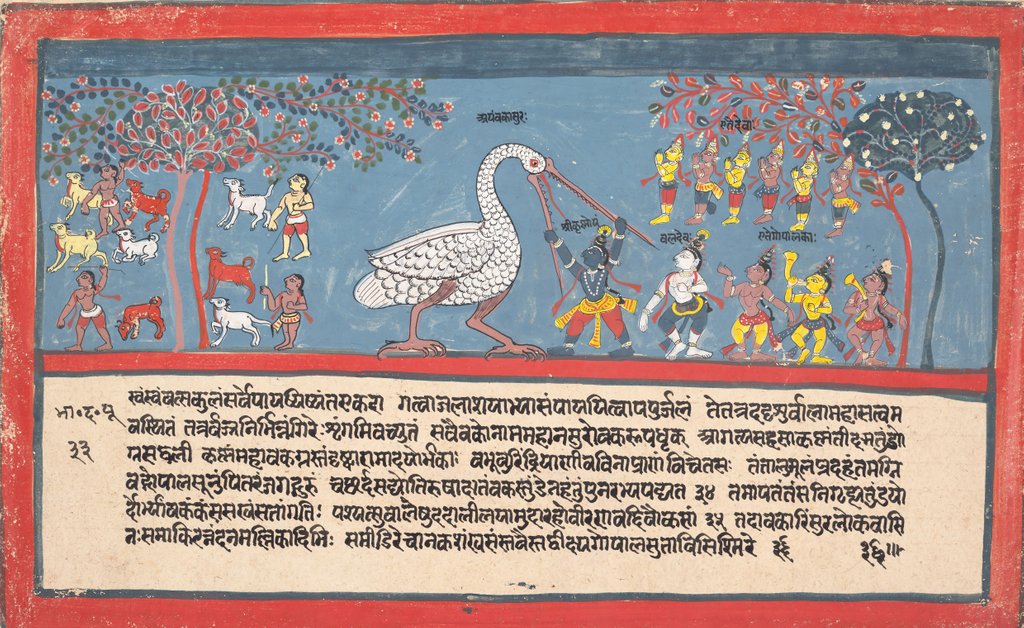 अयंवकासुरः
एतेदेवाः
श्रीकृष्णोयं
वलदेवः
एतेगोपालकाः
भा॰द॰पू
३३
स्वंस्वंवत्सकुलंसर्वेपाययिष्यंतएकदा गत्वाजलाशयाभ्यासंपाययित्वापपुर्जलं तेतत्रददृशुर्वालामहासत्वम
वस्थितं तत्रसुर्वज्रनिर्भिन्नंगिरेः शृंगमिवच्युतं सवैवकोनाममहानसुरोवकरूपधृक् आगत्यसहसाकृष्णंतीक्ष्णतुंडो
ग्रसद्वली कृष्णंमहावकग्रस्तंदृष्ट्वारामादयोर्भकाः वभूवुरिंद्रियाणीवविनाप्राणंविचेतसः तंतालुमूलंप्रदहंतमग्नि
वद्गोपालसूनुंपितरंजगद्गुरुं चछर्दसद्योतिरुषाक्षतंवकस्तुंडेनहंतुंपुनरभ्यपद्यत ३४ तमापतंतंसनिगृह्यतुंडयो
र्दोर्भ्यांवकंकंससखंसतांगतिः पश्यत्सुवालेषुददारलीलयामुदावहोवीरणवद्दिवौकसां ३५ तदावकारिंसुरलोकवासि
नःसमाकिरन्नंदनमल्लिकादिभिः समीडिरेचानकशंखसंस्तवैस्तद्वीक्ष्यगोपालसुताविसिस्मिरे ३६ ३६॥